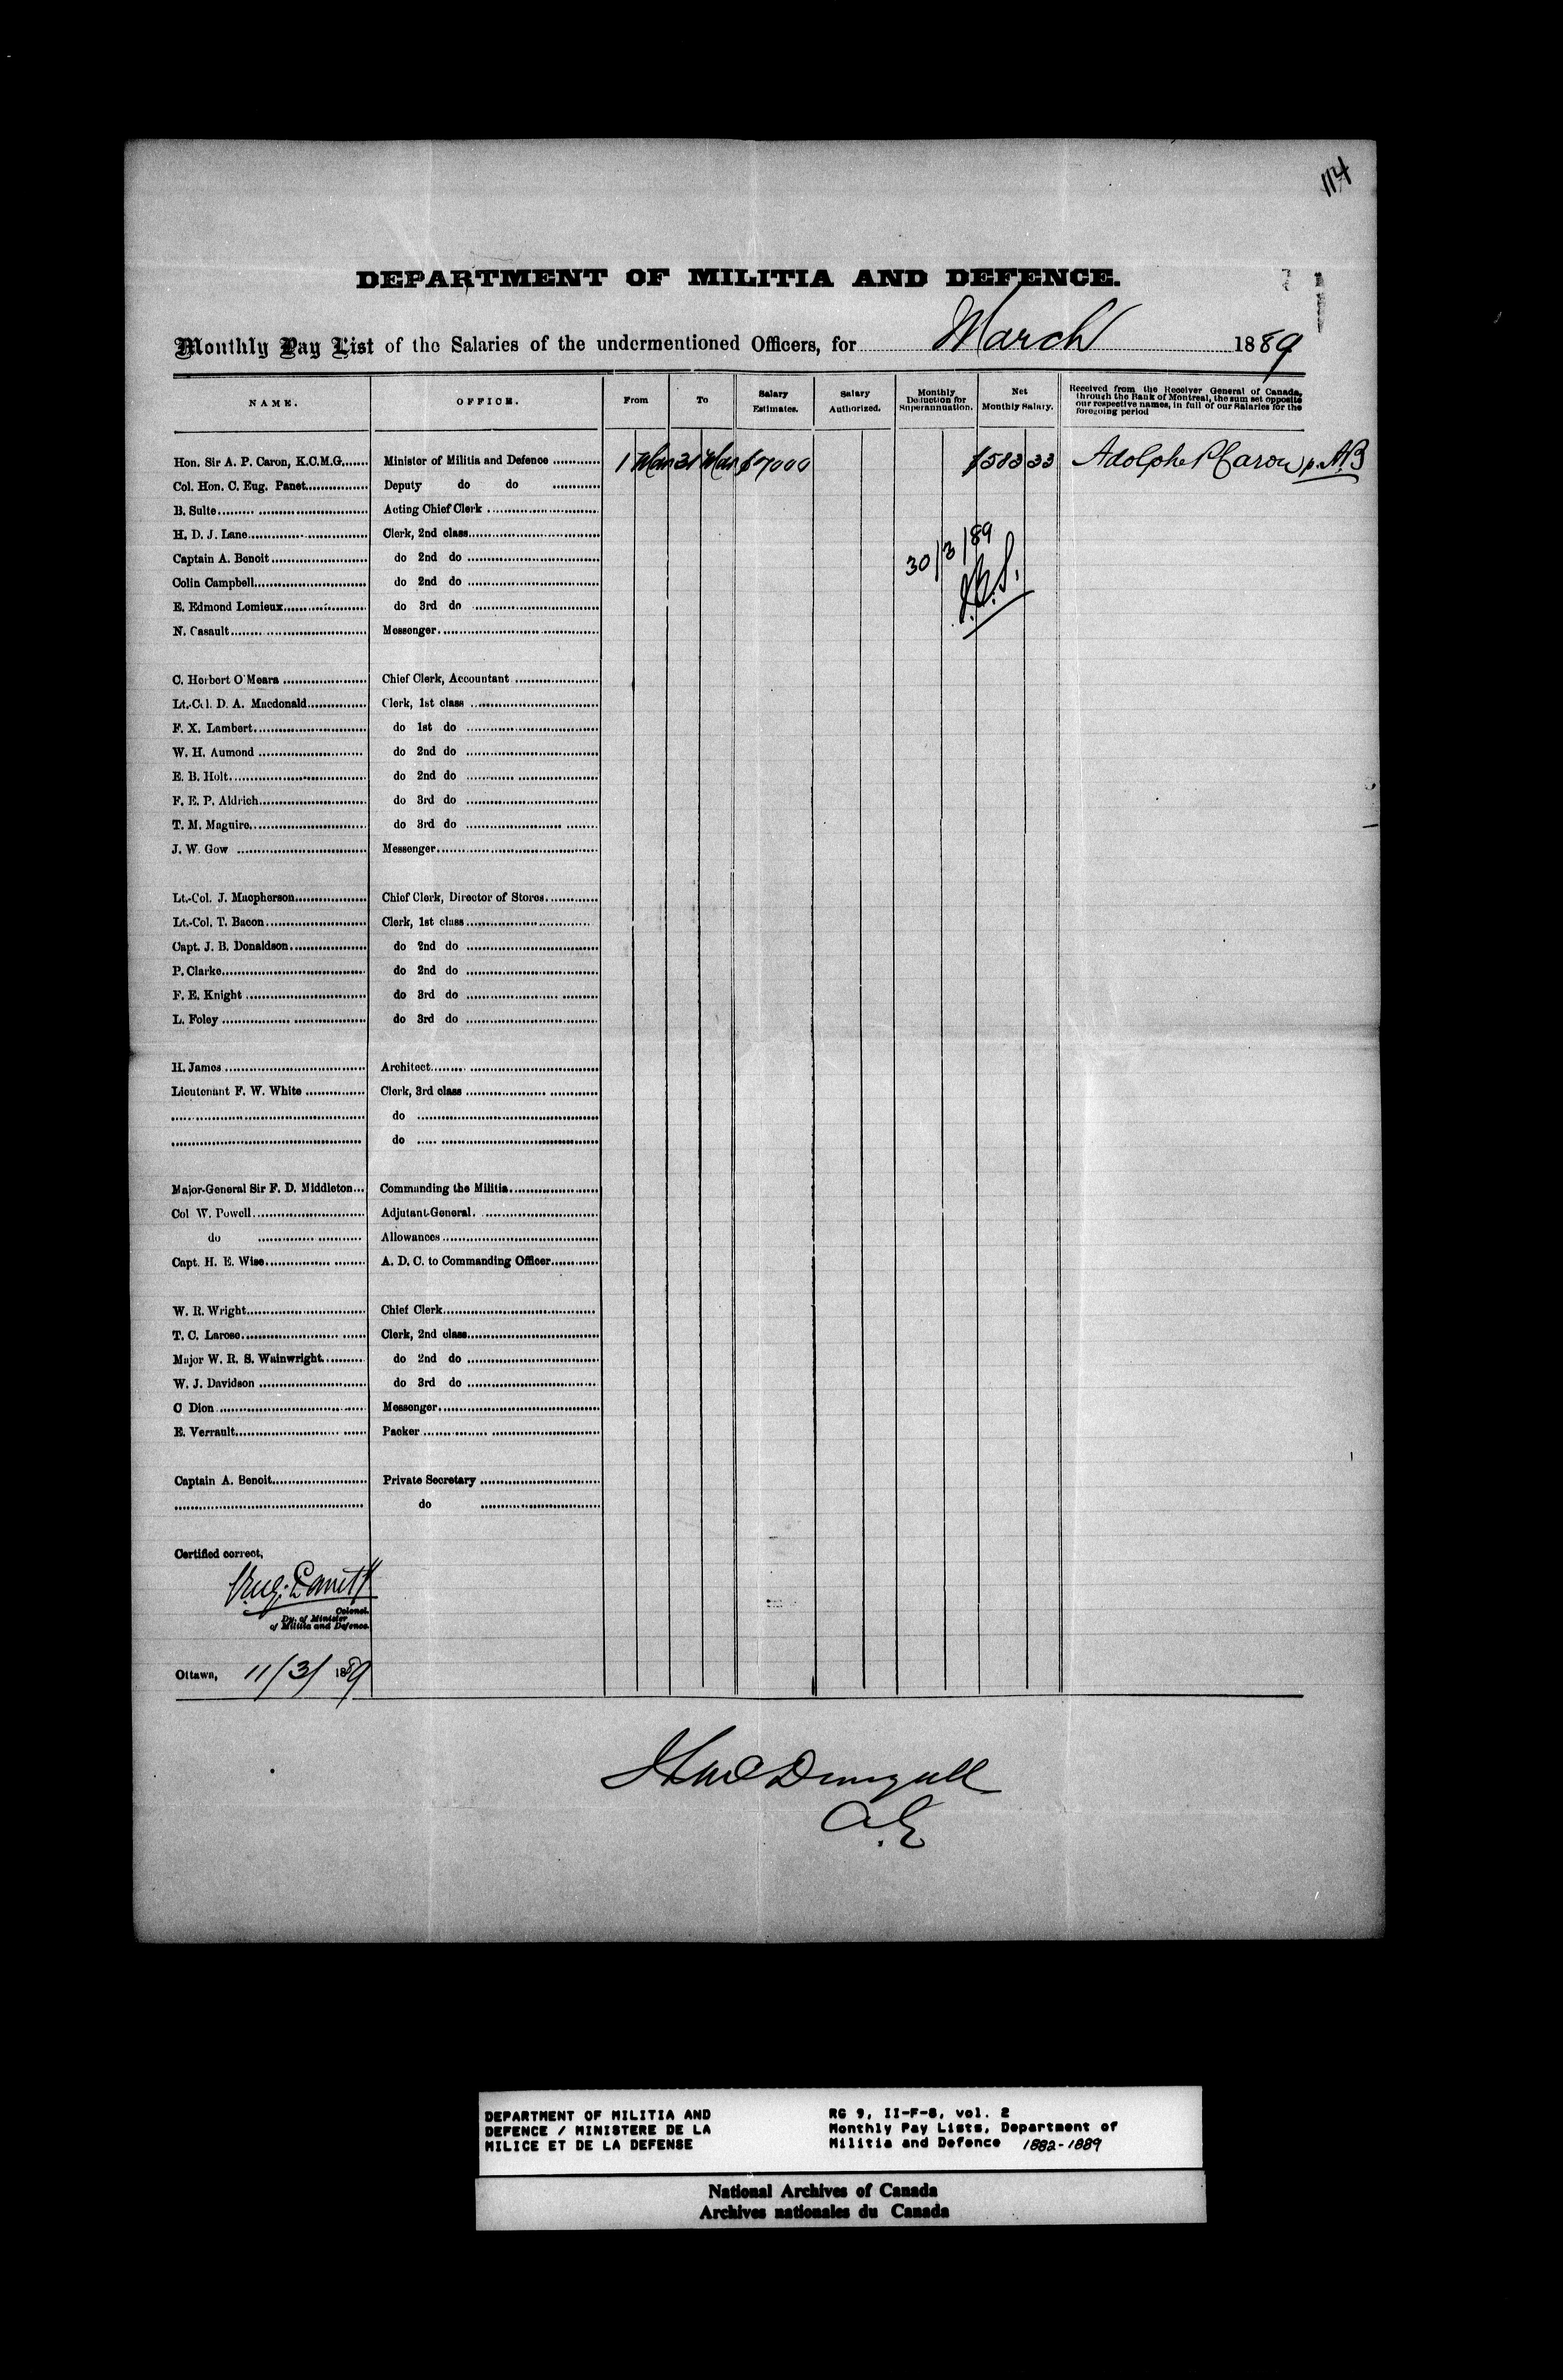 114
DEPARTMENT OF MILITIA AND DEFENCE.
Monthly Pay List of the Salaries of the undermentioned Officers, for March 1889
NAME. OFFICE. From To Salary Estimates. Salary Authorized. Monthly Deduction for Superannuation. Net Monthly Salary. Received from the Receiver General of Canada, through the Bank of Montreal, the sum set opposite our respective names, in full of our Salaries for the foregoing period
Hon. Sir A. P. Caron, K.C.M.G. Minister of Militia and Defence 1 Mar 31 Mar $7000 $583 33 Adolphe P Caron p. AB
Col. Hon. C. Eug. Panet Deputy do do
B. Sulte Acting Chief Clerk
H. D. J. Lane Clerk, 2nd class
30/3/89
Captain A. Benoit do 2nd do
Colin Campbell do 2nd do
E. Edmond Lemieux do 3rd do
N. Casault Messenger
C. Herbert O'Meara Chief Clerk, Accountant
Lt.-Col. D. A. Macdonald Clerk, 1st class
F. X. Lambert do 1st do
W. H. Aumond do 2nd do
E. B. Holt do 2nd do
F. E. P. Aldrich do 3rd do
T. M. Maguire do 3rd do
J. W. Gow Messenger
Lt.-Col. J. Macpherson Chief Clerk, Director of Stores
Lt.-Col. T. Bacon Clerk, 1st class
Capt. J. B. Donaldson do 2nd do
P. Clarke do 2nd do
F. E. Knight do 3rd do
L. Foley do 3rd do
H. James Architect
Lieutenant F. W. White Clerk, 3rd class
do
do
Major-General Sir F. D. Middleton Commanding the Militia
Col W. Powell Adjutant-General
do Allowances
Capt. H. E. Wise A. D. C. to Commanding Officer
W. R. Wright Chief Clerk
T. C. Larose Clerk, 2nd class
Major W. R. S. Wainwright do 2nd do
W. J. Davidson do 3rd do
C Dion Messenger
E. Verrault Packer
Captain A. Benoit Private Secretary
do
Certified correct,
Eug. Panet
Colonel.
Dy. of Minister
of Militia and Defence.
Ottawa, 11/3/1889
DEPARTMENT OF MILITIA AND
DEFENCE / MINISTERE DE LA
MILICE ET DE LA DEFENSE
RG 9, II-F-8, vol. 2
Monthly Pay Lists, Department of
Militia and Defence 1882-1889
National Archives of Canada
Archives nationales du Canada